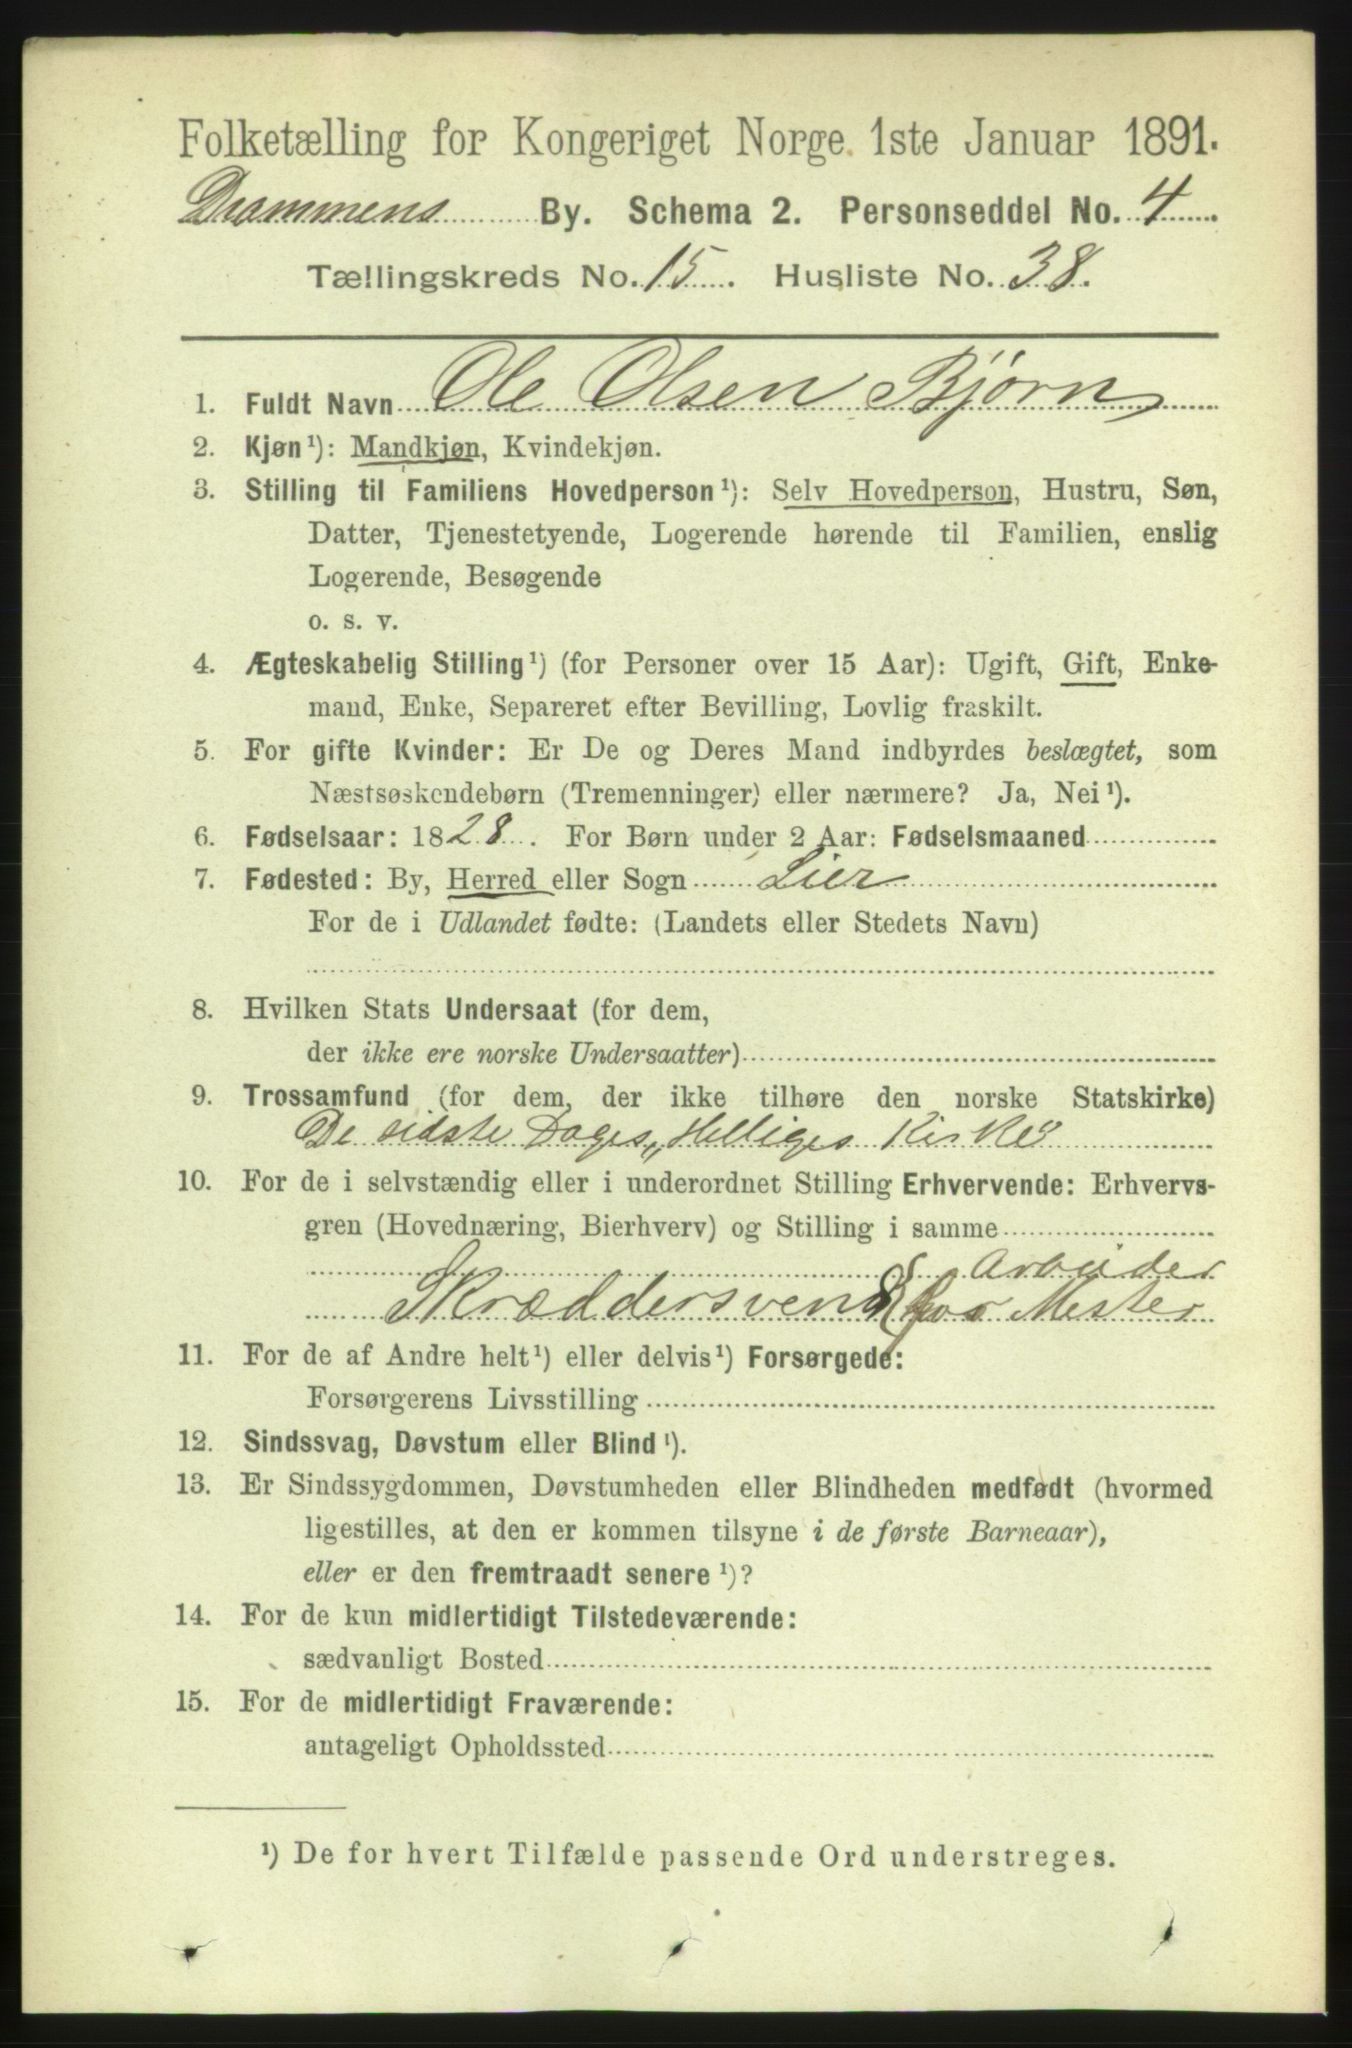 Folketælling for Kongeriget Norge 1ste Januar 1891.
Drammens By. Schema 2. Personseddel No. 4
Tællingskreds No. 15. Husliste No. 38.
1. Fuldt Navn Ole Olsen Bjørn
2. Kjøn¹): Mandkjøn, Kvindekjøn.
3. Stilling til Familiens Hovedperson¹): Selv Hovedperson, Hustru, Søn,
Datter, Tjenestetyende, Logerende hørende til Familien, enslig
Logerende, Besøgende
o. s. v.
4. Ægteskabelig Stilling¹) (for Personer over 15 Aar): Ugift, Gift, Enke-
mand, Enke, Separeret efter Bevilling, Lovlig fraskilt.
5. For gifte Kvinder: Er De og Deres Mand indbyrdes beslægtet, som
Næstsøskendebørn (Tremenninger) eller nærmere? Ja, Nei¹).
6. Fødselsaar: 1828. For Børn under 2 Aar: Fødselsmaaned
7. Fødested: By, Herred eller Sogn Lier
For de i Udlandet fødte: (Landets eller Stedets Navn)
8. Hvilken Stats Undersaat (for dem,
der ikke ere norske Undersaatter)
9. Trossamfund (for dem, der ikke tilhøre den norske Statskirke)
De sidste Dages„ Helliges Kirke
10. For de i selvstændig eller i underordnet Stilling Erhvervende: Erhvervs-
gren (Hovednæring, Bierhverv) og Stilling i samme
Arbeider
Skræddersvend for Mester
11. For de af Andre helt¹) eller delvis¹) Forsørgede:
Forsørgerens Livsstilling
12. Sindssvag, Døvstum eller Blind¹).
13. Er Sindssygdommen, Døvstumheden eller Blindheden medfødt (hvormed
ligestilles, at den er kommen tilsyne i de første Barneaar),
eller er den fremtraadt senere¹)?
14. For de kun midlertidigt Tilstedeværende:
sædvanligt Bosted
15. For de midlertidigt Fraværende:
antageligt Opholdssted
¹) De for hvert Tilfælde passende Ord understreges.